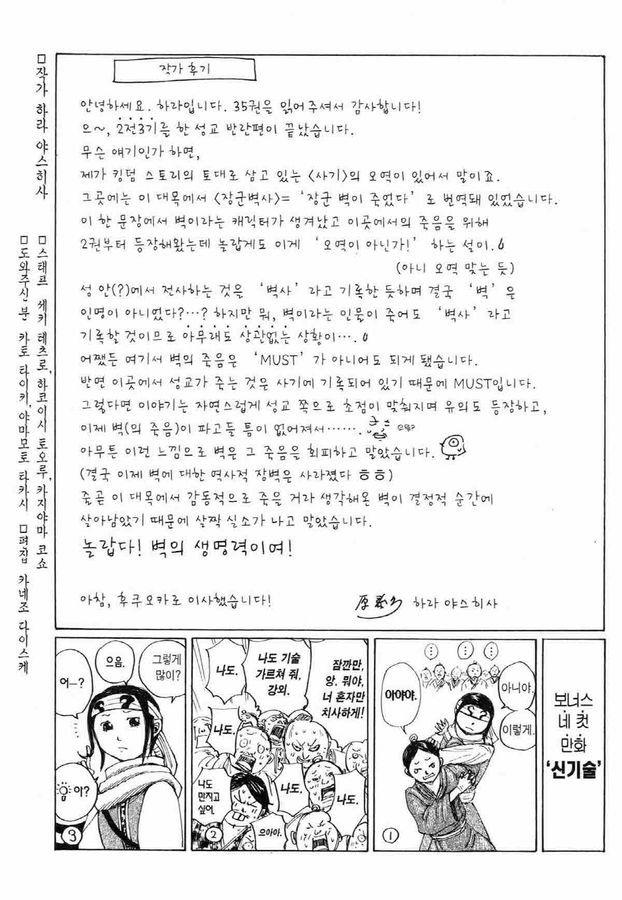 작가 후기
안녕하세요. 하라입니다. 35권을 읽어주셔서 감사합니다!
으~, 2전3기를 한 성교 반란편이 끝났습니다.
무슨 얘기인가 하면,
제가 킹덤 스토리의 토대로 삼고 있는 〈사기〉의 오역이 있어서 말이죠.
그곳에는 이 대목에서 〈장군벽사〉= ‘장군 벽이 죽었다’ 로 번역돼 있었습니다.
이 한 문장에서 벽이라는 캐릭터가 생겨났고 이곳에서의 죽음을 위해
2권부터 등장해왔는데 놀랍게도 이게 ‘오역이 아닌가!’ 하는 설이.
(아니 오역 맞는 듯)
성 안(?)에서 전사하는 것을 ‘벽사’ 라고 기록한 듯하며 결국 ‘벽’ 은
인명이 아니었다?…? 하지만 뭐, 벽이라는 인물이 죽어도 ‘벽사’ 라고
기록할 것이므로 아무래도 상관없는 상황이….
어쨌든 여기서 벽의 죽음은 ‘MUST’ 가 아니어도 되게 됐습니다.
반면 이곳에서 성교가 죽는 것은 사기에 기록되어 있기 때문에 MUST입니다.
그렇다면 이야기는 자연스럽게 성교 쪽으로 초점이 맞춰지며 유의도 등장하고,
이제 벽(의 죽음)이 파고들 틈이 없어져서…….
아무튼 이런 느낌으로 벽은 그 죽음을 회피하고 말았습니다.
(결국 이제 벽에 대한 역사적 장벽은 사라졌다 ㅎㅎ)
줄곧 이 대목에서 감동적으로 죽을 거라 생각해온 벽이 결정적 순간에
살아남았기 때문에 살짝 실소가 나고 말았습니다.
놀랍다! 벽의 생명력이여!
아참, 후쿠오카로 이사했습니다!
하라 야스히사
□작가 하라 야스히사
□스태프 세키 테츠로, 하코이시 토오루, 카지야마 코쇼
□도와주신 분 카토 타이키, 야마모토 타카시 □편집 카네조 다이스케
보너스
네 컷
만화
‘신기술’
…
…
…
아니야.
이렇게.
아야야.
①
잠깐만,
앙. 뭐야,
너 혼자만
치사하게!
나도 기술
가르쳐 줘.
강의.
나도.
나도.
나도.
나도.
나도
만지고
싶어.
으아아.
②
그렇게
많이?
으음.
어—?
③